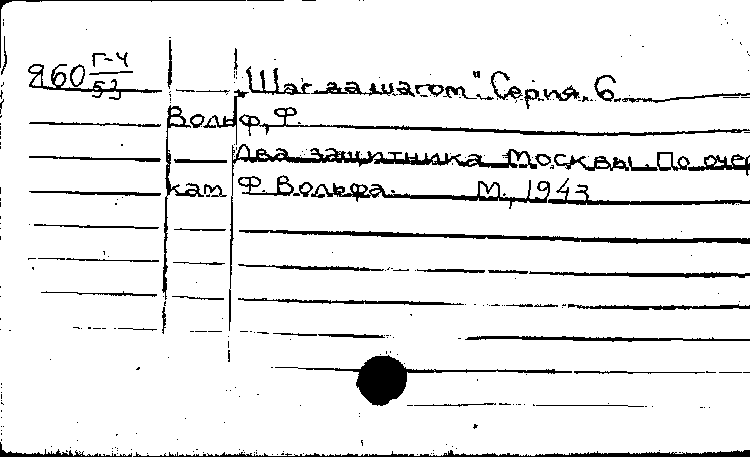 860 Г-4/53 „Шаг за шагом". Серия. 6
Вольф, Ф.
Два защитника Москвы. По очер
кам Ф. Вольфа. М., 1943